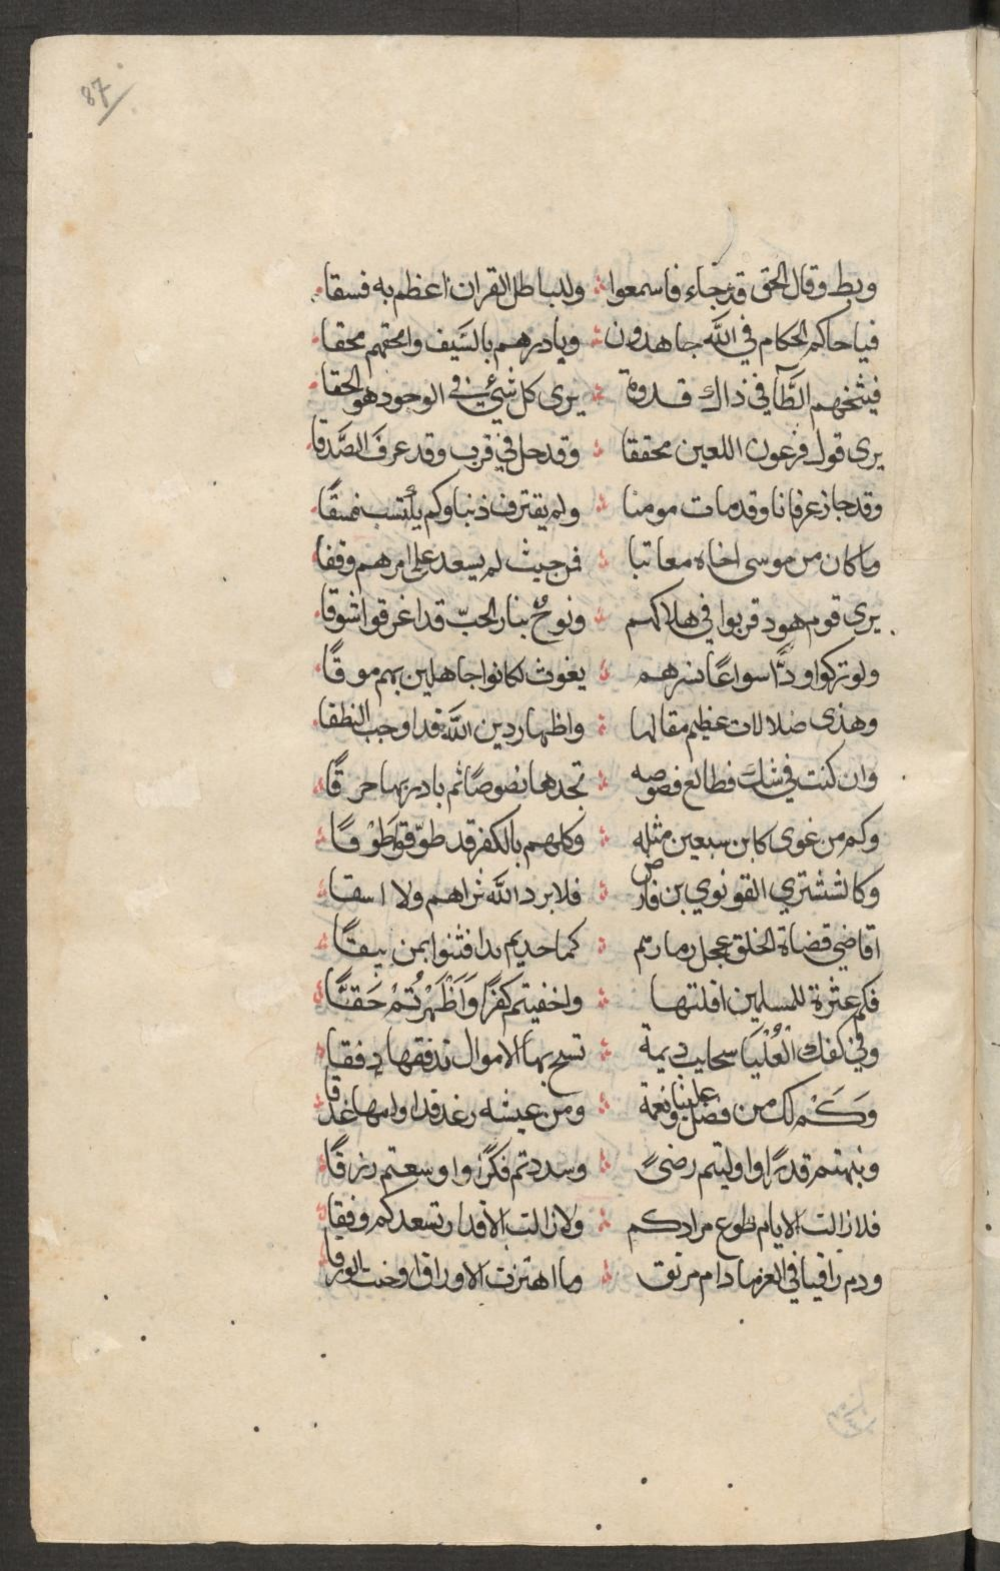 87
وبط وقال الحق قد جاء فاسمعوا وللباطل القران اعظم به فسقا
فيا حاكم الحكام في الله جاهدون وبادرهم بالسَيف وامحقهم محقا
فيثخنهم الطَّآفي ذاك قدوة يرى كل شيئ في الوجود هو الحقا
يرى قول فرعون اللعين محققا وقد حل في قرب وقد عرفَ الصَّدقا
وقد حاز عرفانا وقد مات مومنا ولم يقترف ذنبا وكم يأتسب فسقًا
وما كان من موسى اخاه معاتبا فمن حيث لم يسعد على امرهم وفقا
يرى قوم هود قربوا في هلاكهم ونوحٌ بنار الحبّ قد اغرقوا شوقا
ولو تركوا ودًّا سواعًا نسرهم يغوث لكانوا جاهلين بهم موقًا
وهذى ضلالات عظيم مقالها واظهار دين الله قد اوجب النطقا
وان كنت في شك فطالع فصوصه تجدها نصوصًا ثم بادر بها حرقًا
وكم من غوى كابن سبعين مثله وكلهم بالكفر قد طوّقوا طَوْقًا
وكالششتري القونوي بن فارض فلا برد الله ثراهم ولا اسقا
اقاضي قضاة الخلق عجل دمارتم كما حديم بدا فثنوا بمن يبقا
فكم عثرة للمسلمين اقلتها واخفيتم كفرًا وَاَظْهَرْتُمْ حَقًّا
وفي كفك الْعُلْيَا سحايب ديمة تسح بها الاموال تدفقها دفقا
وَكَمْ لك من فضل علينا ونعمة ومن عيشه رغد قد اوامها غدقا
ونبهتم قدرًا واوليتم رضىً وسددتم فكرًا واوسعتم رزقًا
فلا زالت الايام طوع مرادكم ولا زالت الاقدار تسعدكم وفقا
ودم راقيا في العز ما دام مرتق وما اهتزت الاوراق اوخت الورقا